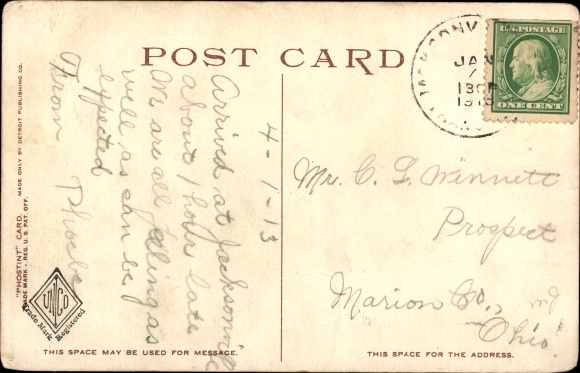 POST CARD
JACKSONVI
JAN
7
1913
U.S. POSTAGE
ONE CENT
4-1-13
Arrived at Jacksonville
about 1 hour late
We are all feeling as
well as can be
expected
From Phoebe
Mr. C. L. Winnett
Prospect
Marion Co.,
Ohio
"PHOSTINT" CARD. MADE ONLY BY DETROIT PUBLISHING CO.
TRADE MARK - REG. U.S. PAT. OFF.
Trade Mark
Registered
THIS SPACE MAY BE USED FOR MESSAGE.
THIS SPACE IS FOR THE ADDRESS.